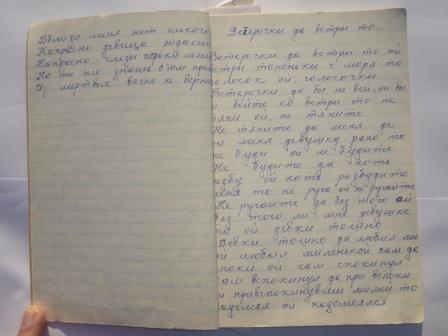 Вблизи меня нет никого
Напрасно девица рыдаешь
Напрасно слезы горьки льешь
Но ты не знаешь о том
Из мертвых вечно не
Ветерочки да ветры то
Ветерочки да ветры то ой
ветры тононькие с моря то
голосок ой голосочки
Ветерочки да вы не вей, ой вы
не вейте ко ветры то не
тяни ой, не тяните
Не тяните да меня де
ой меня девушку рано то
не буди ой не будите
Не будите да хоть
ой хоть разбудите
меня то не руга ой не ругайте
Не ругайте да без того ой
без того ли мне девушке
то ой девки тошно
Девки тошно да любил
ой любил миленькой сам да
спокои ой сам спокинул
Сам вспокинул да при вспоки
ой привспокинувши милый то
надсмея ой надсмеялся